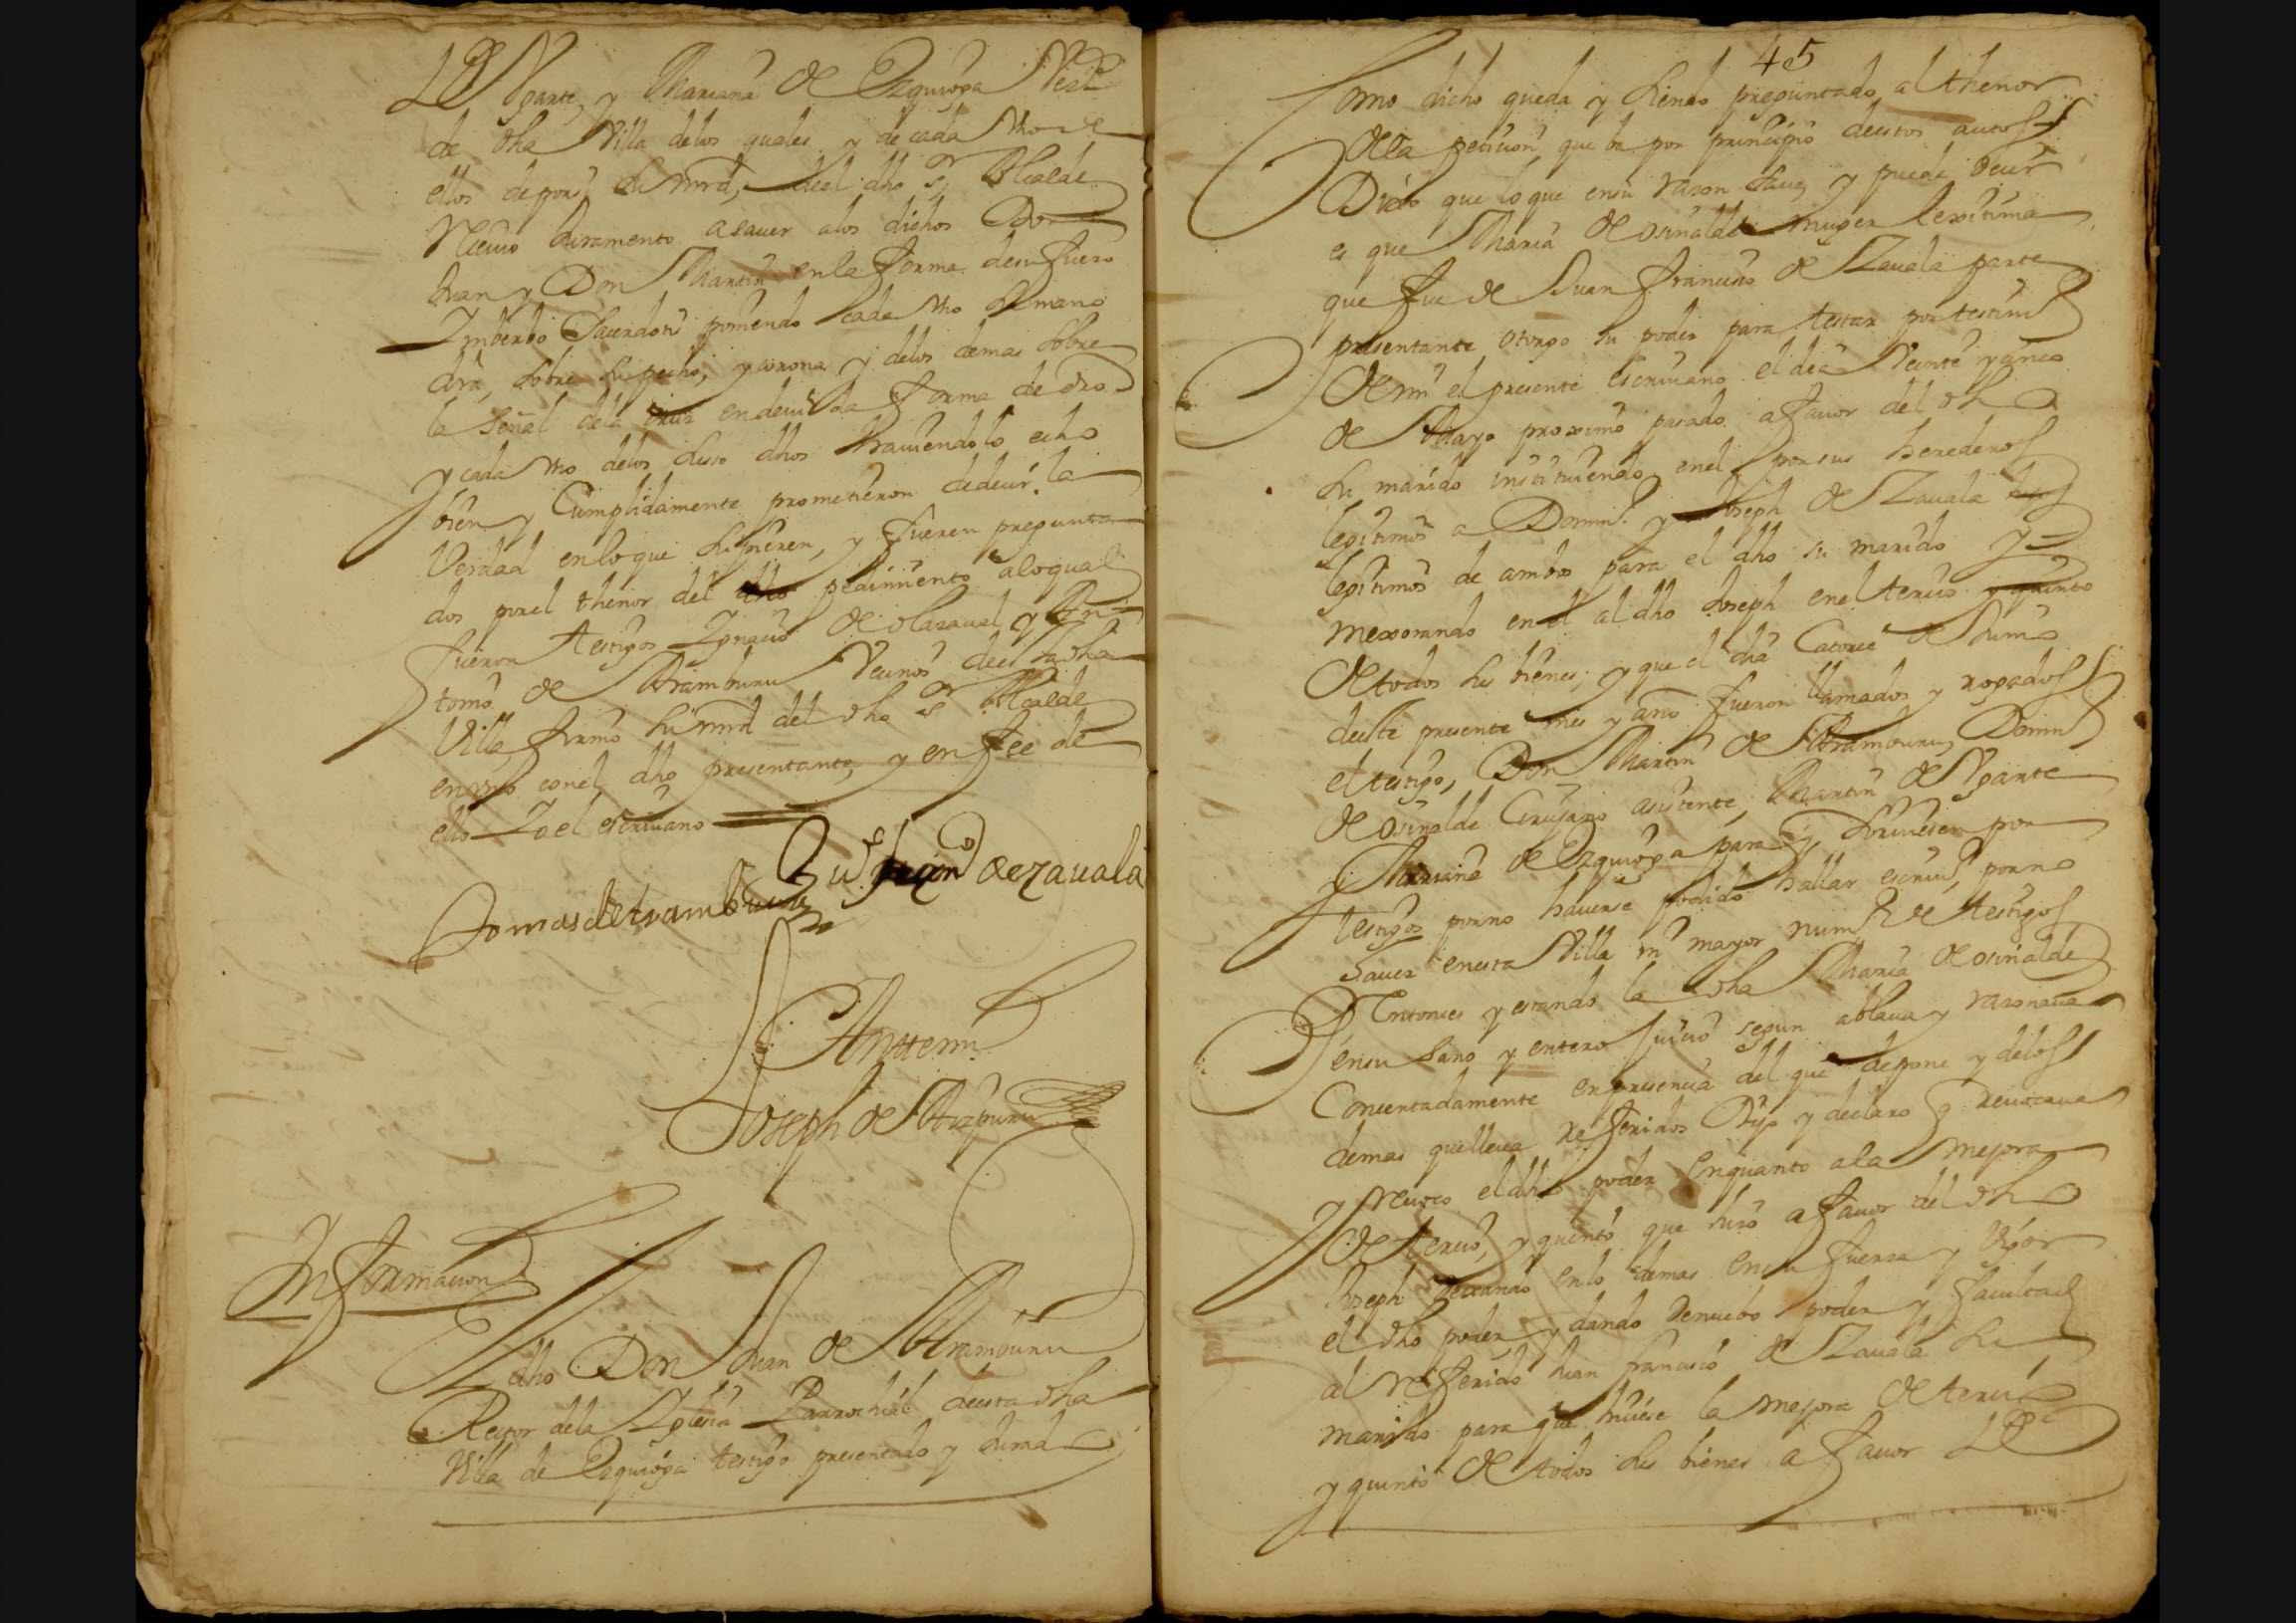 de Ugarte, y Mariana de Ezquioga Vez.ˢ
de dha Villa delos quales y de cada vno de
ellos de por si su mrd, del dho Sʳ Alcalde
Reciuio Juramento asauer alos dichos Don
Juan y Don Martin en la forma de su fuero
In berbo Sacerdotis poniendo cada vno su mano
dra, sobre su pecho, y corona y delos demas sobre
la señal dela cruz en deuida forma de dro
y cada vno delos suso dhos hauiendolo echo
bien y Cumplidamente prometieron dedecir la
Verdad en lo que supieren, y fueren pregunta
dos por el thenor del dho pedimiento alo qual
fueron testigos Ignacio de olazaual y An
tonio de Aramburu Vecinos de esta dha
Villa, firmo su mrd del dho Sʳ Alcalde
en vno con el dho presentante, y en fee de
ello Yo el escriuano
Juº franᶜᵒ de zauala
Tomas de Aramburu
Antemi
Joseph de Aizpuru
Informacion
El dho Don Juan de Aramburu
Rector dela Iglesia Parrochial de esta dha
Villa de Ezquioga testigo presentado y Jurado
45
Como dicho queda y siendo preguntado al thenor
de la peticion que ba por principio de estos autos
Dixo que lo que en su razon saue, y puede decir
es que Maria de osinalde muger lexitima
que fue de Juan francisco de Zauala parte
presentante otorgo su poder para testar por testimº
de mi el presente escriuano el dia Veinte y cinco
de Mayo proximo pasado a fauor del dho
su marido instituiendo en el por sus herederos
legitimos a Domin.º y Joseph de Zauala hijos
legitimos de ambos para el dho su marido y
mexorando en el al dho Joseph en el tercio y quinto
de todos sus bienes, y que el dia Catorce de Junio
de este presente mes y año fueron llamados y rogados
el testigo, Don Martin de Aramburu, Domin.º
de osinalde Cirujano asistente, Martin de Ugarte
y Mariana de Ezquioga para q. siruiesen por
testigos por no hauerse podido hallar escriuº, por no
hauer en esta Villa ni mayor numº de testigos
Entonces y estando la dha Maria de osinalde
en su sano y entero Juicio segun ablaua y razonaua
Concertadamente en presencia del que depone y delos
demas que lleua referidos Dijo y declaro q. reuocaua
y reuoco el dho poder en quanto ala mejora
de tercio, y quinto que hizo a fauor del dho
Joseph dexando en lo demas en su fuerza y Vigor
el dho poder, y dando de nuebo poder y facultad
al referido Juan francisco de Zauala su
marido para que hiciese la mejora de tercio
y quinto de todos sus bienes a fauor de